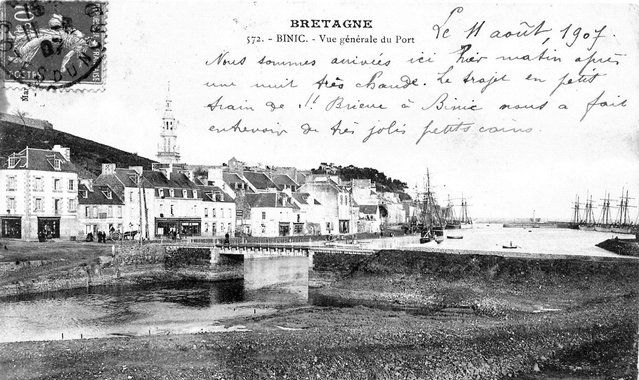 BRETAGNE
572. - BINIC. - Vue générale du Port
Le 11 août, 1907
Nous sommes arrivés ici hier matin après
une nuit très chaude. Le trajet en petit
train de St Brieuc à Binic nous a fait
entrevoir de très jolis petits coins.
POSTES